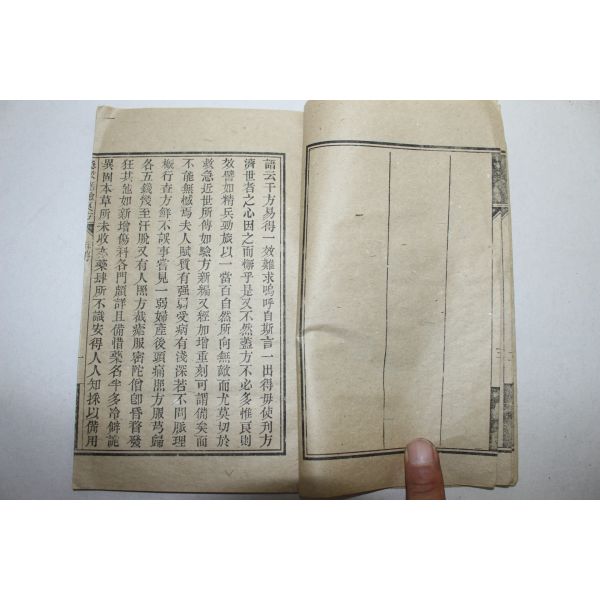 語云千方易得一效難求嗚呼自斯言一出得毋使刊方
濟世者之心因之而懈乎是又不然蓋方不必多惟良則
效譬如精兵勁旅以一當百自然所向無敵而尤莫切於
救急近世所傳如驗方新編又經加增重刻可謂備矣而
不能無憾焉夫人賦質有强弱受病有淺深若不問脈理
檢行查方鮮不誤事嘗見一弱婦產後頭痛照方服芎歸
各五錢幾至汗脫又有人照方截瘧服密陀僧卽昏瞀發
狂其他如新增傷科各門頗詳且備惜藥名半多冷僻詭
異固本草所未收亦藥肆所不識安得人人知採以備用